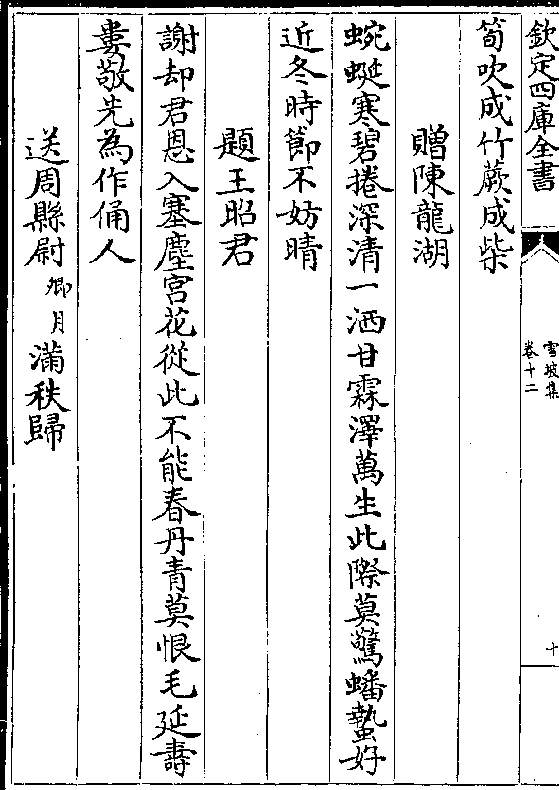 欽定四庫全書
雪坡集
卷十二
十
筍吹成竹蕨成柴
贈陳龍湖
蜿蜒寒碧捲深清一洒甘霖澤萬生此際莫驚蟠蟄好
近冬時節不妨晴
題王昭君
謝却君恩入塞塵宮花從此不能春丹青莫恨毛延壽
婁敬先為作俑人
送周縣尉卿月滿秩歸